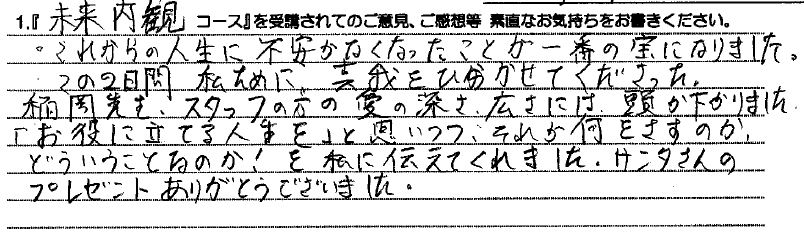 1.『未来内観 コース』を受講されてのご意見、ご感想等 素直なお気持ちをお書きください。
・これからの人生に 不安がなくなったことが一番の宝になりました。
この2日間 私ために、真我をひらかせてくださった。
稲岡先生、スタッフの方の愛の深さ、広さには、頭が下がりました
「お役に立てる人生を」と思いつつ、それが何をさすのか、
どういうことなのか！を私に伝えてくれました。サンタさんの
プレゼントありがとうございました。